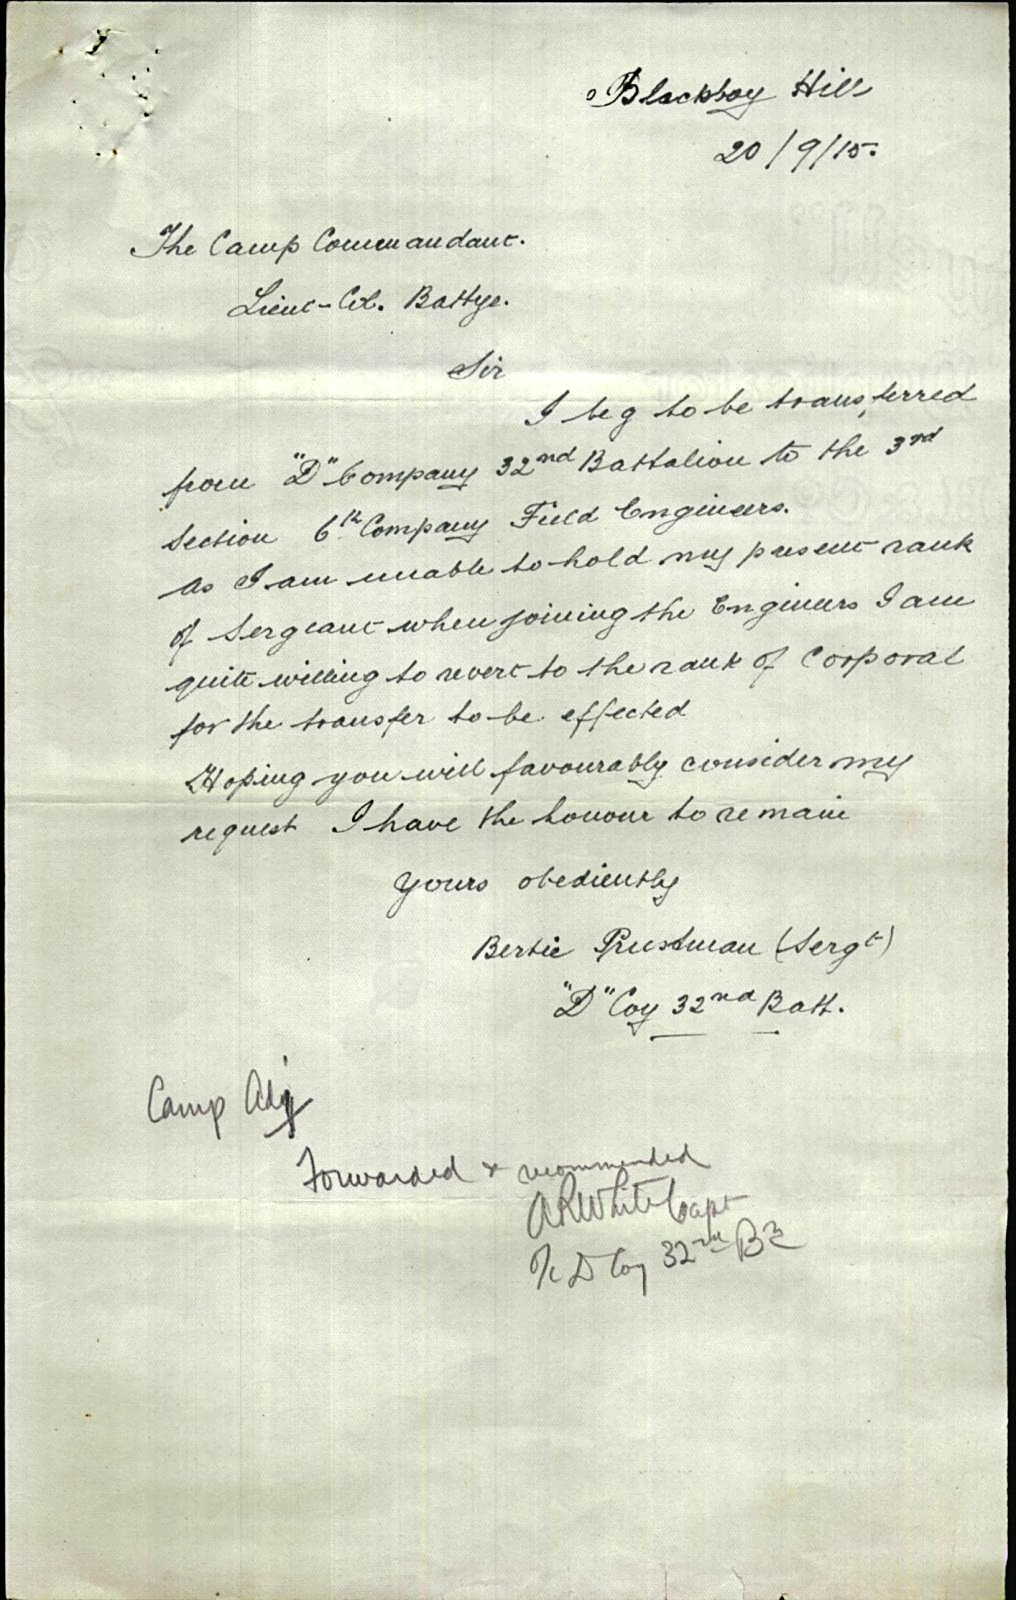 Blackboy Hill
20/9/15.
The Camp Commandant.
Lieut-Col. Battye.
Sir
I beg to be transferred
from "D" Company 32nd Battalion to the 3rd
Section 6th Company Field Engineers.
As I am unable to hold my present rank
of Sergeant when joining the Engineers I am
quite willing to revert to the rank of Corporal
for the transfer to be effected
Hoping you will favourably consider my
request I have the honour to remain
Yours obediently
Bertie Prustman (Sergt)
"D" Coy 32nd Batt.
Camp Adj
Forwarded & recommended
A R White Capt
D Coy 32nd